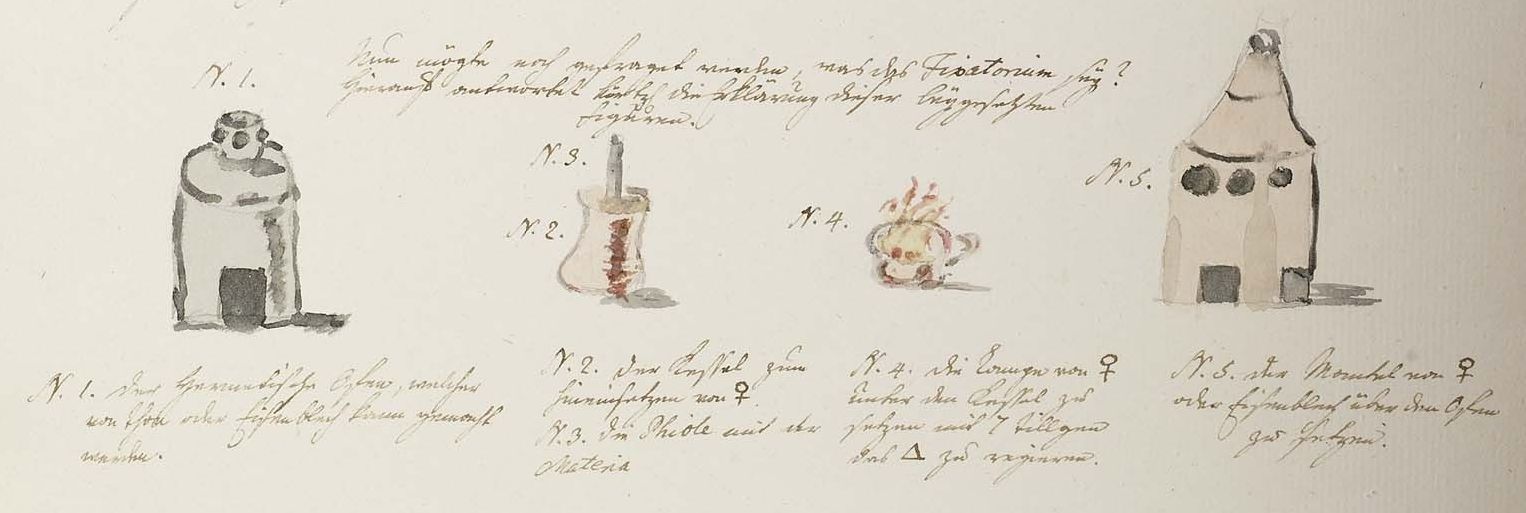 N. 1.
Nun mögte noch gefraget werden, was das Fixatorium sey?
Hierauf antwortet die Erklärung dieser beygesetzten
Figuren.
N. 3.
N. 2.
N. 4.
N. 5.
N. 1. Der Hermetische Ofen, welcher
von Thon oder Eisenblech kann gemacht
werden.
N. 2. Der Kessel zum
hineinsetzen von ♀.
N. 3. Die Phiole mit der
Materia
N. 4. Die Lampe von ♀
unter den Kessel zu
setzen mit 7 tillgen
das △ zu regieren.
N. 5. der Mantel von ♀
oder Eisenblech über den Ofen
zu setzen.